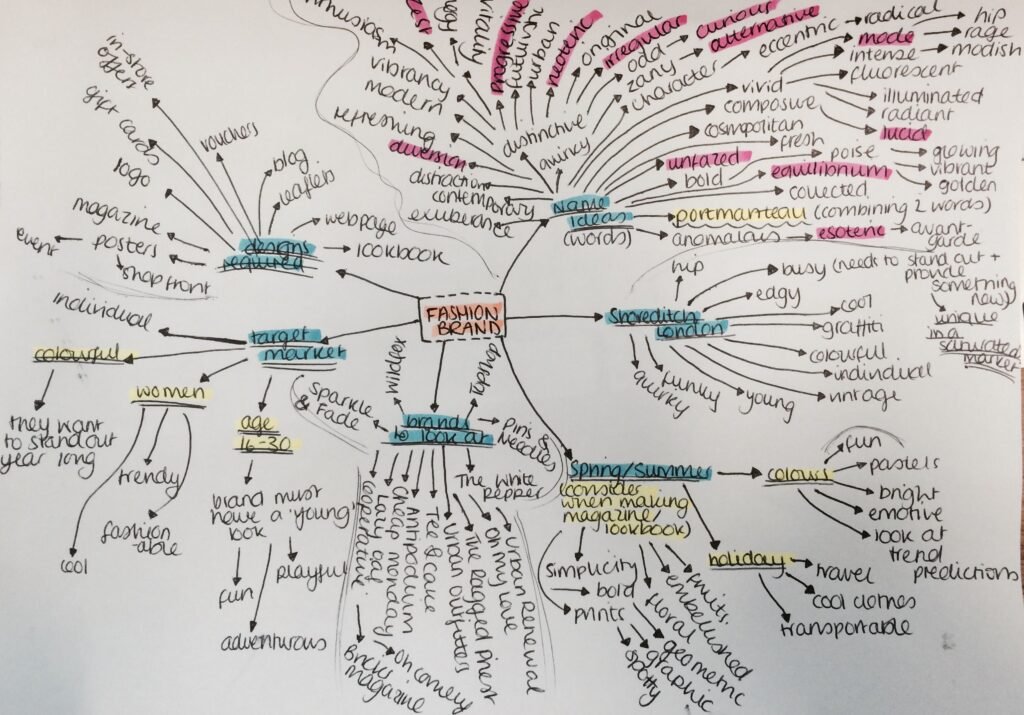 FASHION
BRAND
Name
Ideas
(words)
exuberance
contemporary
distraction
diversion
refreshing
modern
vibrancy
progressive
futuristic
urban
neoteric
quirky
distinctive
original
irregular
odd
curious
zany
alternative
character
eccentric
vivid
radical
mode
hip
rage
modish
intense
fluorescent
illuminated
radiant
lucid
glowing
vibrant
golden
composure
cosmopolitan
fresh
unfazed
bold
poise
equilibrium
collected
portmanteau (combining 2 words)
anomalous
esoteric
avant-
garde
Shoreditch
London
hip
busy (need to stand out +
provide
something
new)
unique
in a
saturated
market
edgy
cool
graffiti
colourful
individual
vintage
young
funky
quirky
Spring/Summer
(consider
when making
magazine/
lookbook)
colours
fun
pastels
bright
emotive
look at
trend
predictions
holiday
travel
cool clothes
transportable
simplicity
bold
prints
spotty
graphic
geometric
floral
embellished
fruits
brands
to look at
wildfox
Topshop
Pins &
Needles
The White
Pepper
Urban Renewal
Oh My Love
The Ragged Priest
Urban Outfitters
Tee & Cake
Antipodium
Cheap Monday
Lazy Oaf
cooperative
Oh comely
Bricks
magazine
Sparkle
& Fade
target
market
individual
colourful
they want
to stand out
year long
women
cool
trendy
fashion
able
age
16-30
brand must
have a 'young'
look
fun
adventurous
playful
designs
required
in-store
offers
gift cards
logo
magazine
posters
event
shop front
vouchers
blog
leaflets
webpage
lookbook